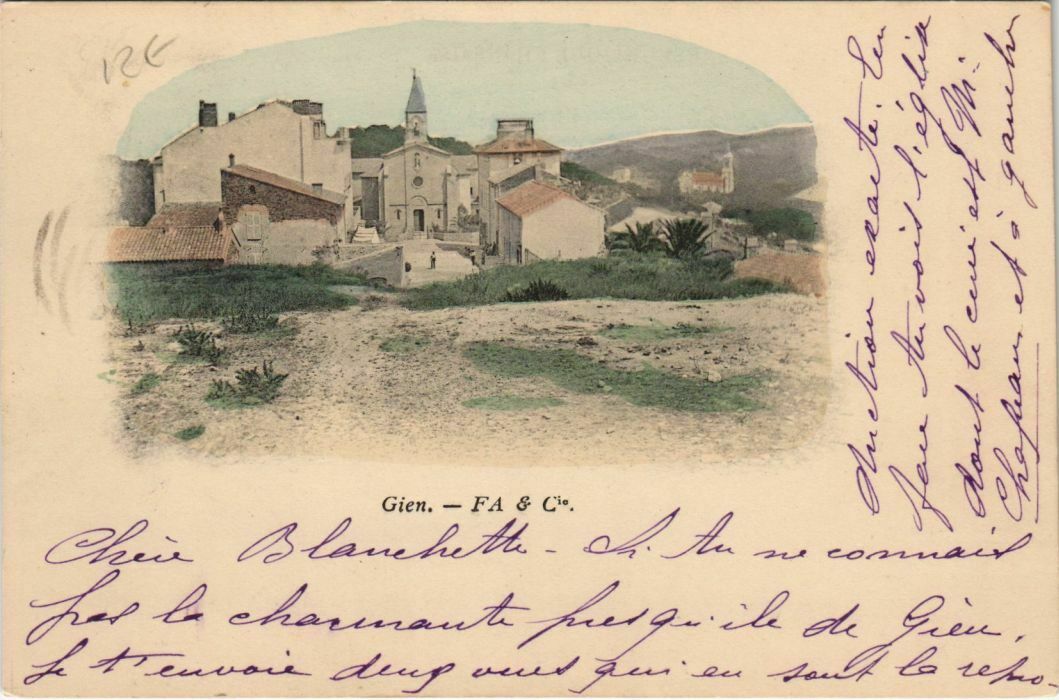 12€
Gien. — FA & Cie.
Chère Blanchette - Si tu ne connais
pas la charmante presqu'ile de Gien,
je t'envoie deux vues qui en sont la repro-
duction exacte. En
face tu vois l'église
dont le curé est Mr.
Chapeau et à gauche